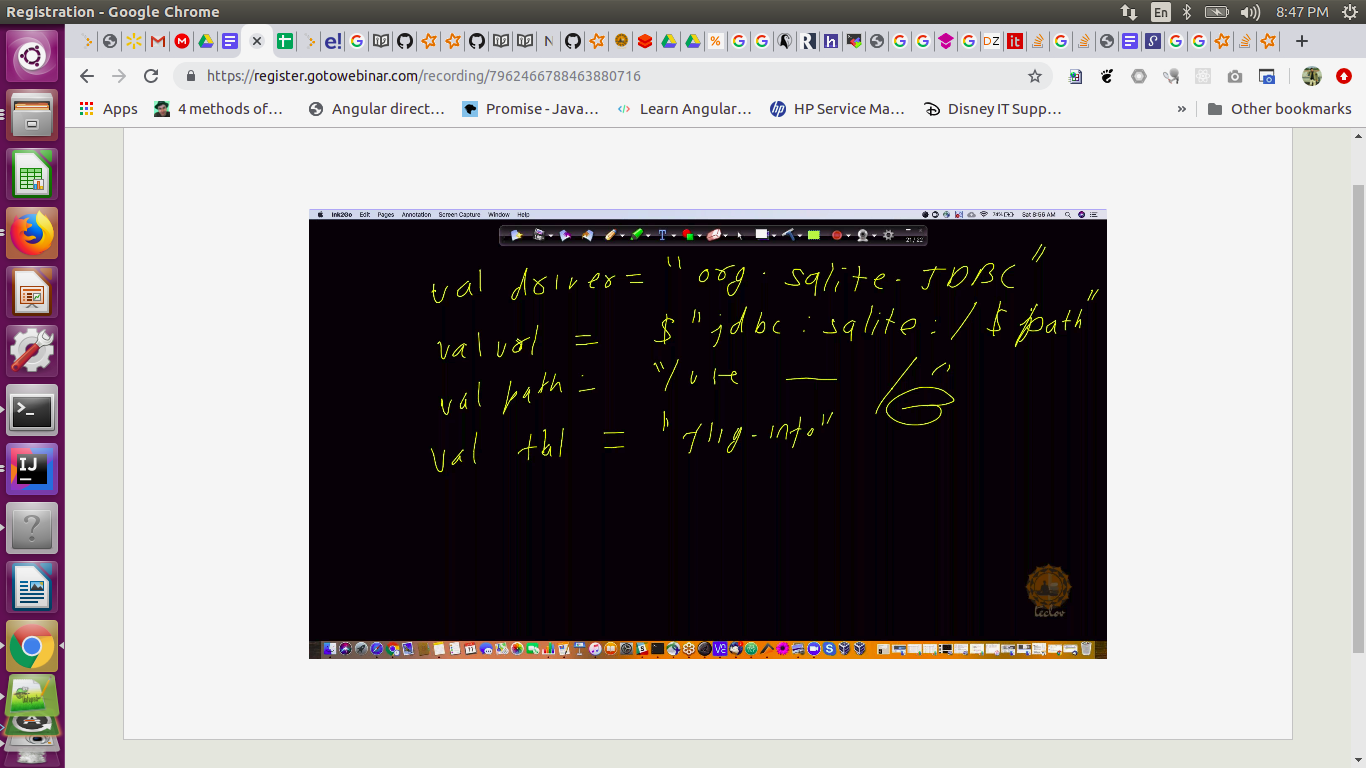 Registration - Google Chrome
En
8:47 PM
https://register.gotowebinar.com/recording/7962466788463880716
Apps
4 methods of...
Angular direct...
Promise - Java...
Learn Angular...
HP Service Ma...
Disney IT Supp...
»
Other bookmarks
Ink2Go Edit Pages Annotation Screen Capture Window Help
74% Sat 8:56 AM
21 / 22
val driver = "org.sqlite.JDBC"
val url = $"jdbc:sqlite:/$path"
val path = "/use
val tbl =